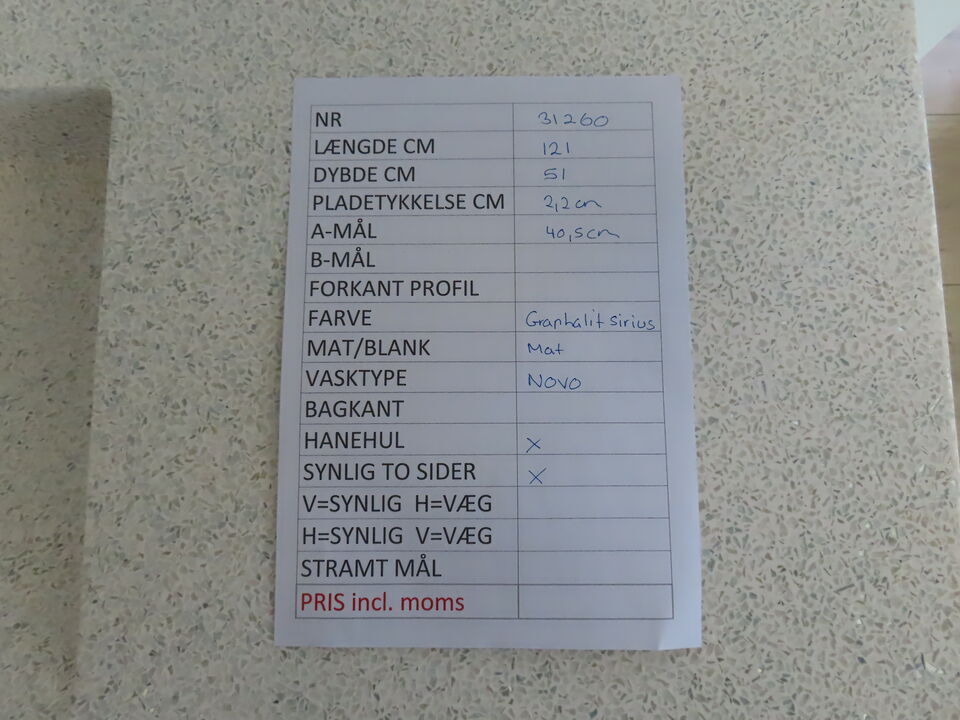 NR 31260
LÆNGDE CM 121
DYBDE CM 51
PLADETYKKELSE CM 2,2cm
A-MÅL 40,5cm
B-MÅL
FORKANT PROFIL
FARVE Graphalit sirius
MAT/BLANK Mat
VASKTYPE NOVO
BAGKANT
HANEHUL X
SYNLIG TO SIDER X
V=SYNLIG H=VÆG
H=SYNLIG V=VÆG
STRAMT MÅL
PRIS incl. moms